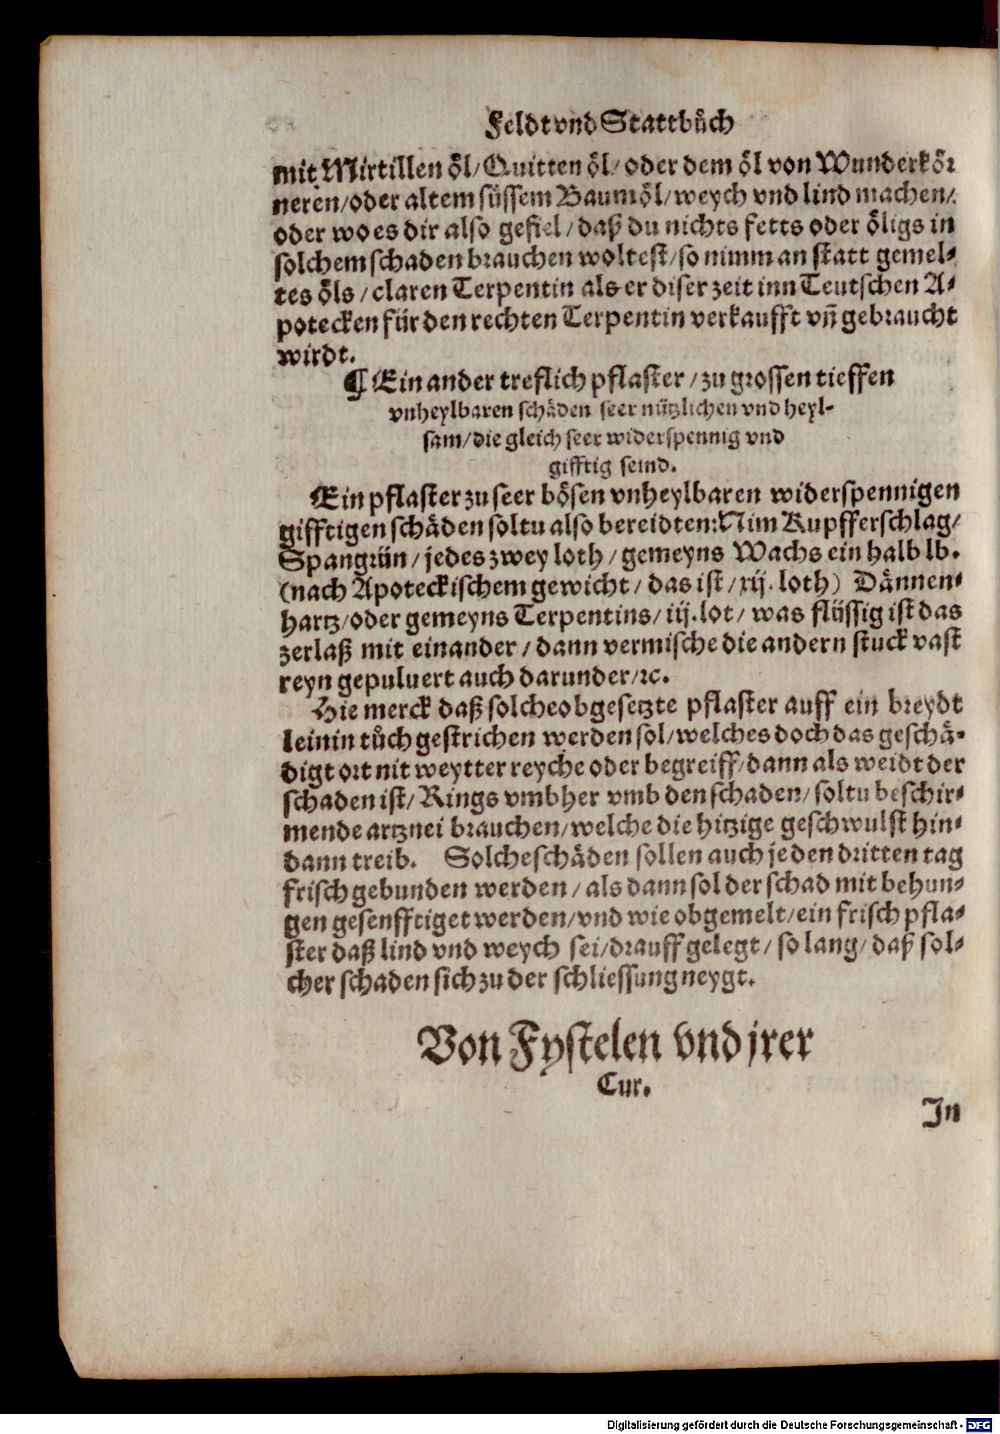 Feldt vnd Stattbuͦch
mit Mirtillen oͤl/ Quitten oͤl/ oder dem oͤl von Wunderkoͤr
neren/oder altem suͤssem Baumoͤl/weych vnd lind machen/
oder wo es dir also gefiel/daß du nichts fetts oder oͤligs in
solchem schaden brauchen woltest/so nimm an statt gemel-
tes oͤls/claren Terpentin als er diser zeit inn Teutschen A-
potecken für den rechten Terpentin verkaufft vñ gebraucht
wirdt.
¶ Ein ander treflich pflaster/zu grossen tieffen
vnheylbaren schaͤden seer nützlichen vnd heyl-
sam/die gleich seer widerspennig vnd
gifftig seind.
Ein pflaster zu seer boͤsen vnheylbaren widerspennigen
gifftigen schaͤden soltu also bereidten: Nim Kupfferschlag/
Spangrün/jedes zwey loth/gemeyns Wachs ein halb lb.
(nach Apoteckischem gewicht/das ist/xij. loth) Daͤnnen-
hartz/oder gemeyns Terpentins/iij. lot/was flüssig ist das
zerlaß mit einander/dann vermische die andern stuck vast
reyn gepuluert auch darunder/ꝛc.
Hie merck daß solche obgesetzte pflaster auff ein breydt
leinin tuͦch gestrichen werden sol/welches doch das geschaͤ-
digt ort nit weytter reyche oder begreiff/dann als weidt der
schaden ist/Rings vmbher vmb den schaden/soltu beschir-
mende artznei brauchen/welche die hitzige geschwulst hin-
dann treib. Solche schaͤden sollen auch je den dritten tag
frisch gebunden werden/als dann sol der schad mit behun-
gen gesenfftiget werden/vnd wie obgemelt/ein frisch pfla-
ster daß lind vnd weych sei/drauff gelegt/so lang/daß sol-
cher schaden sich zu der schliessung neygt.
Von Fystelen vnd jrer
Cur.
In
Digitalisierung gefördert durch die Deutsche Forschungsgemeinschaft - DFG